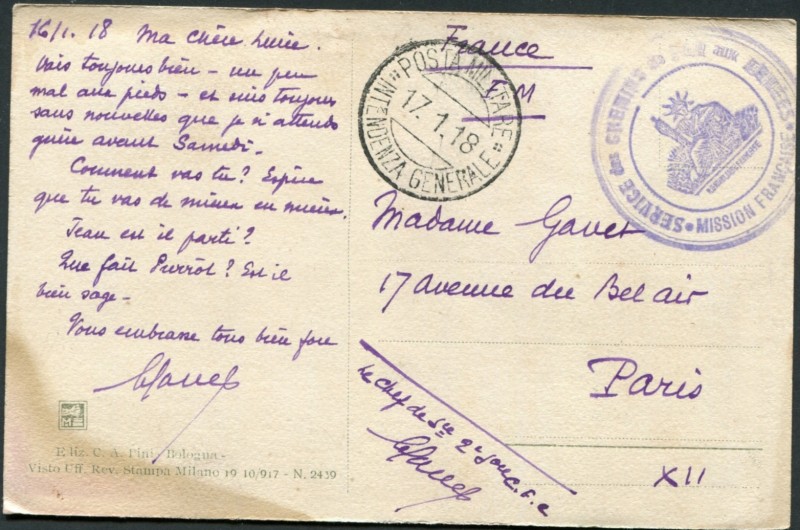 16/1.18 Ma chère
Vais toujours bien - un peu
mal aux pieds - et suis toujours
sans nouvelles que je n'attends
guère avant Samedi -
Comment vas tu? Espère
que tu vas de mieux en mieux.
Jean est il parti?
Que fait Pierrot? Est il
bien sage -
Vous embrasse tous bien fort
GGavet
Ediz. C. A. Pini, Bologna -
Visto Uff. Rev. Stampa Milano 19 10/917 - N. 2439
France
FM
POSTA MILITARE
17.1.18
INTENDENZA GENERALE
SERVICE des CHEMINS de FER aux ARMÉES
MISSION FRANÇAISE
Madame Gavet
17 avenue du Bel air
Paris
XII
Le chef de
GGavet